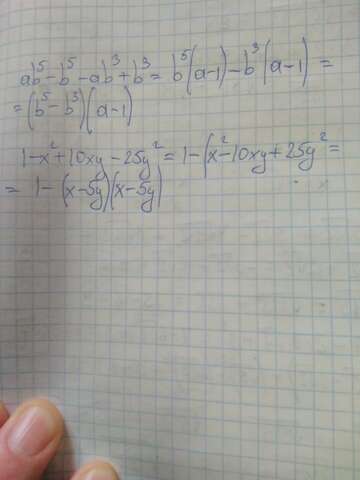 ab⁵ - b⁵ - ab³ + b³ = b⁵(a-1) - b³(a-1) =
= (b⁵ - b³)(a-1)
1-x²+10xy-25y² = 1-(x²-10xy+25y² =
= 1-(x-5y)(x-5y)